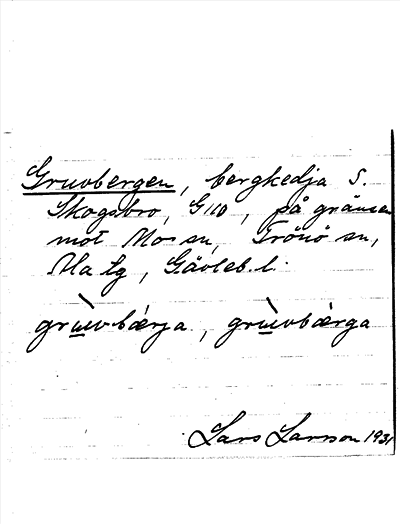 Gruvbergen, bergkedja S.
Skogsbro, G110, på gränsen
mot Mo sn, Trönö sn,
Ala tg, Gävleb. l.
grùvbærja, grùvbærga
Lars Larsson 1931